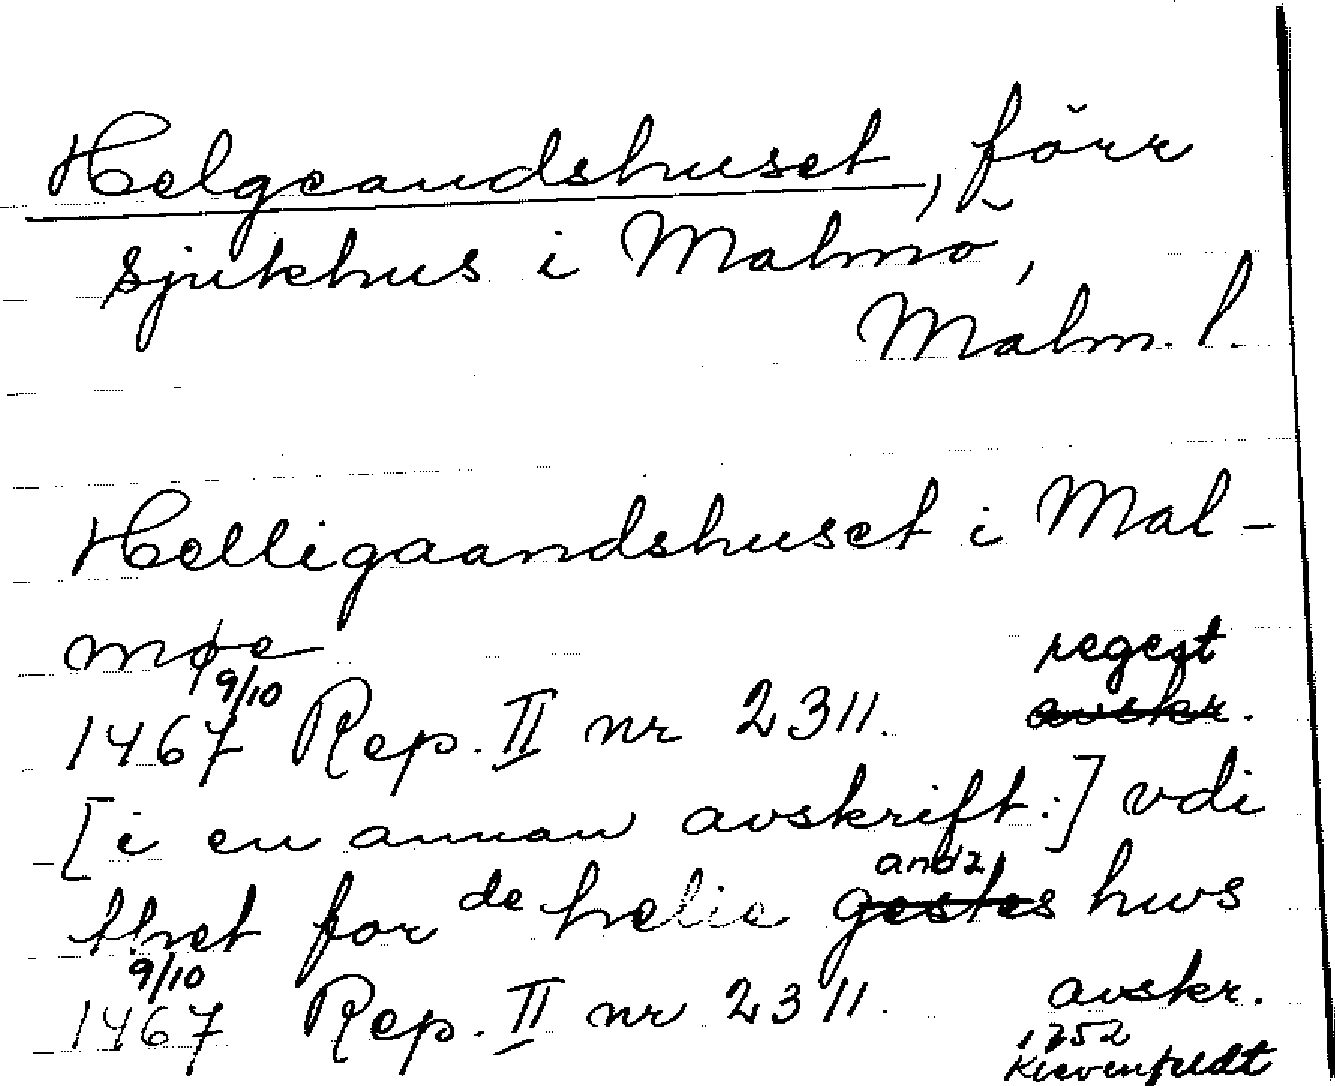 Helgeandshuset, förr
sjukhus i Malmö,
Malm. l.
Helligaandshuset i Mal-
møe
regest
1467 9/10 Rep. II nr 2311. avskr.
[i en annan avskrift:] vdi
for de helie gestes andz hws
1467 9/10 Rep. II nr 2311. avskr.
1752
Klevenfeldt